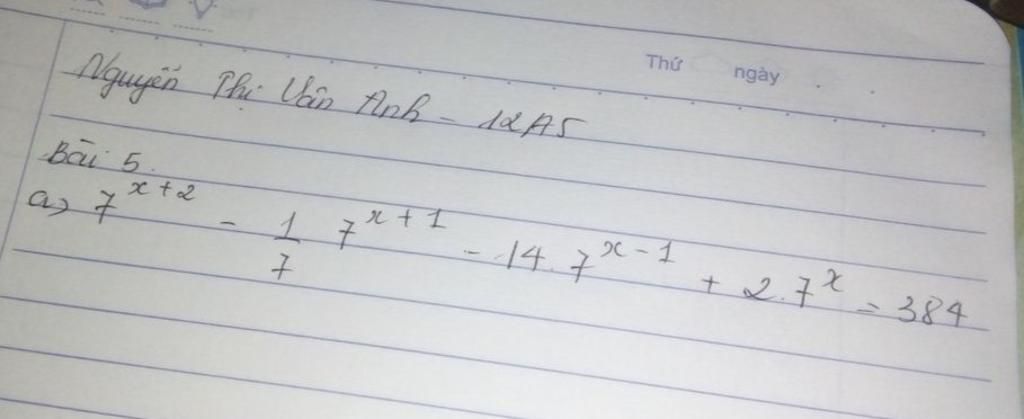 Thứ ngày
Nguyễn Thị Vân Anh - 12A5
Bài 5.
a) 7^{x+2} - \frac{1}{7} 7^{x+1} - 14.7^{x-1} + 2.7^{x} = 384